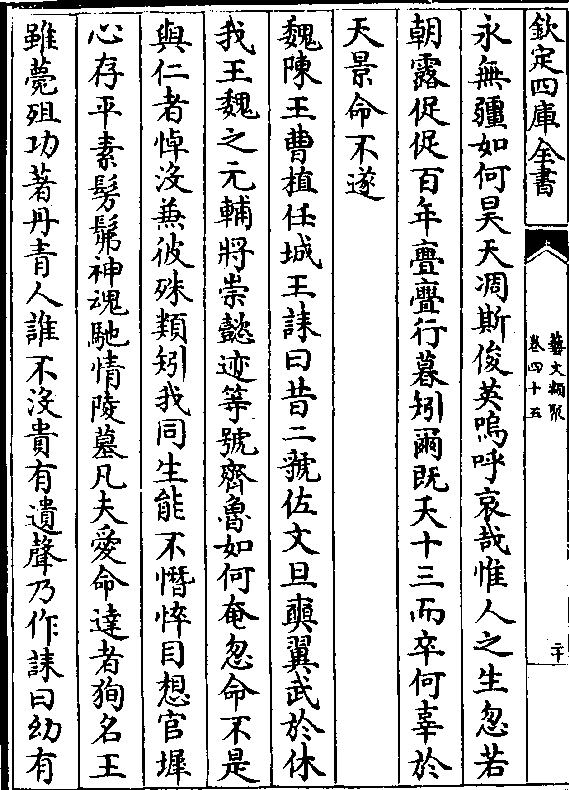 欽定四庫全書
藝文類聚
卷四十五
二十
永無疆如何昊天凋斯俊英嗚呼哀哉惟人之生忽若
朝露促促百年亹亹行暮矧爾既夭十三而卒何辜於
天景命不遂
魏陳王曹植任城王誄曰昔二虢佐文旦奭翼武於休
我王魏之元輔將崇懿迹等號齊魯如何奄忽命不是
與仁者悼沒兼彼殊類矧我同生能不憯悴目想官墀
心存平素髣髴神魂馳情陵墓凡夫愛命達者狥名王
雖薨殂功著丹青人誰不沒貴有遺聲乃作誄曰幼有